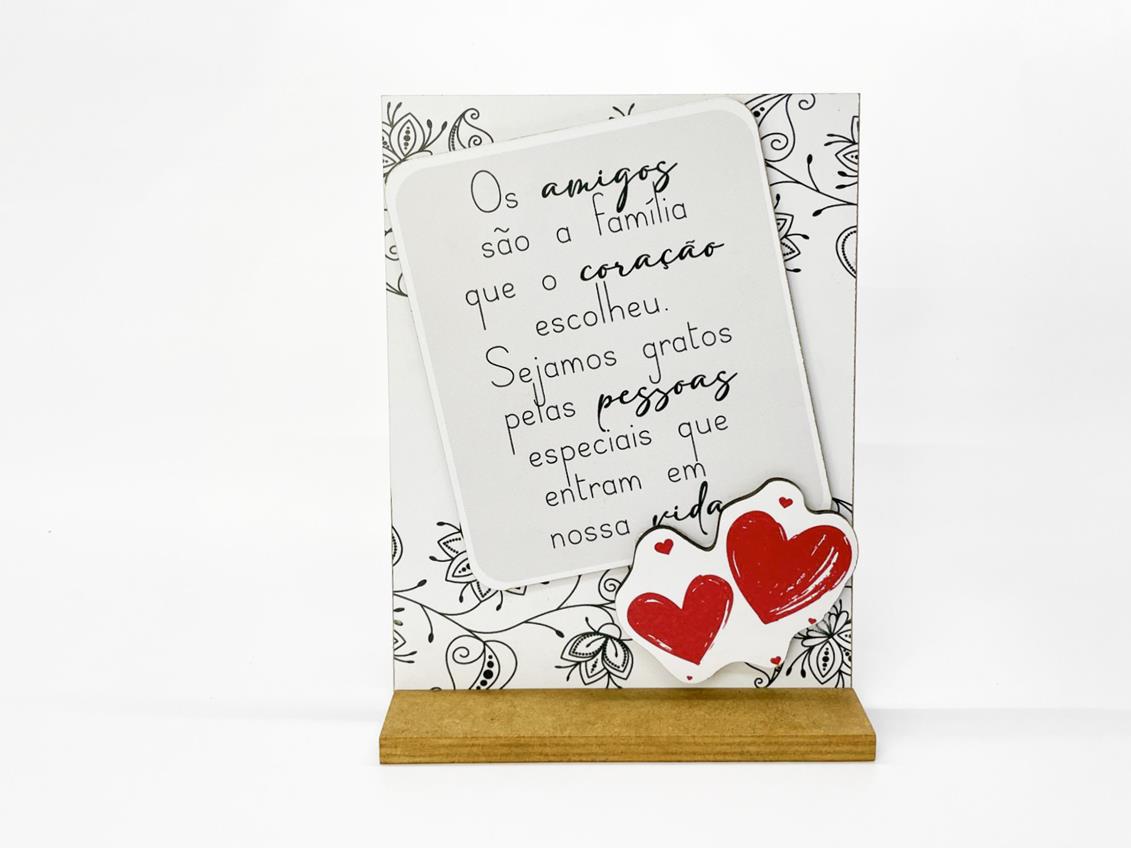 Os amigos
são a família
que o coração
escolheu.
Sejamos gratos
pelas pessoas
especiais que
entram em
nossa vida